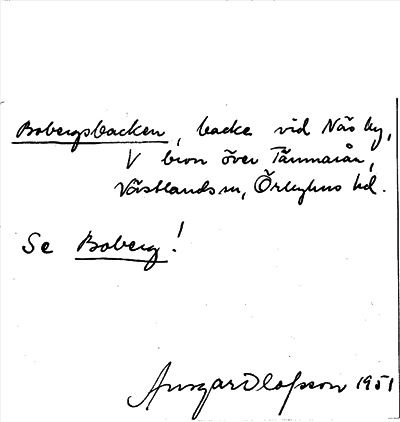 Bobergsbacken, backe vid Näs by,
V bron över Tämnarån,
Västlands sn, Örbyhus hd.
Se Boberg!
Ansgar Olofsson 1951